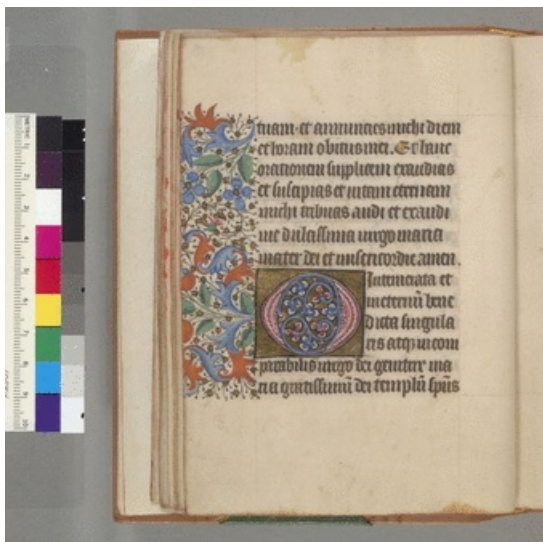 tuam et annuncies michi diem
et horam obitus mei. Et hanc
orationem supplicem exaudias
et suscipias et vitam eternam
michi tribuas audi et exaudi
me dulcissima virgo maria
mater dei et misericordie amen.
O Intemerata et
in eternū bene
dicta singula
ris atq incom
parabilis virgo dei genitrix ma
ria gratissimū dei templū spūs